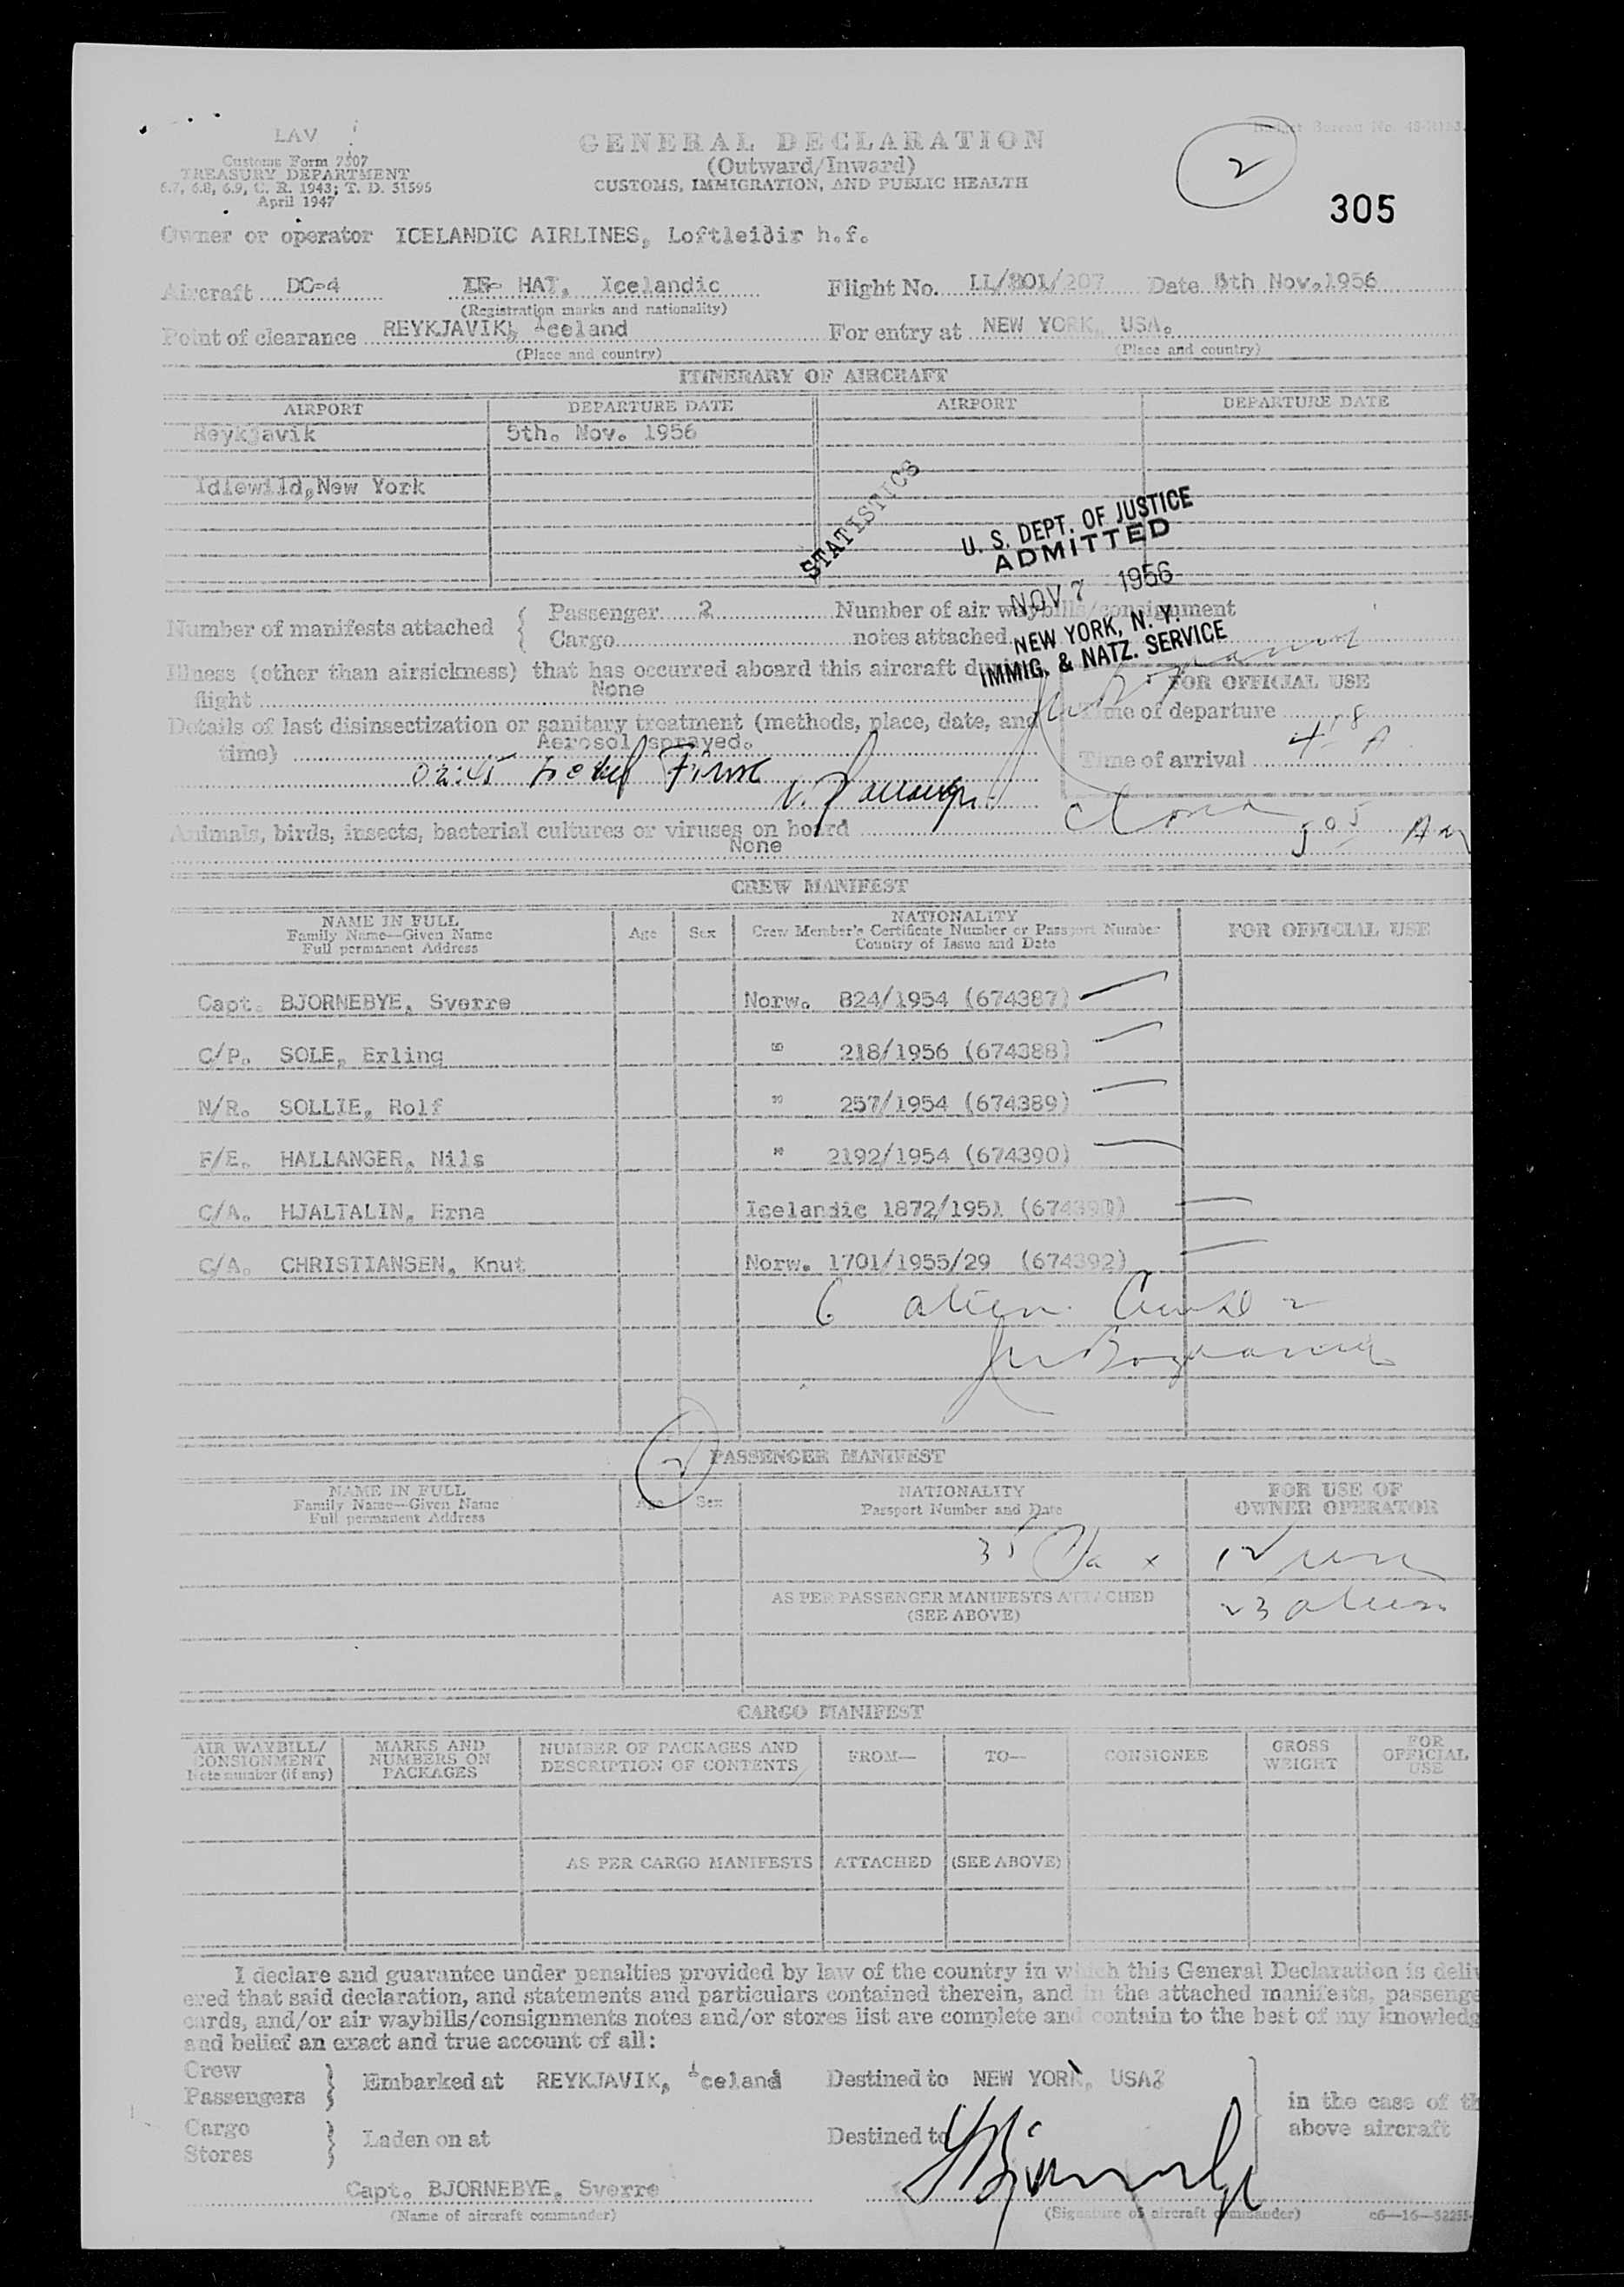 LAV
Customs Form 7507
TREASURY DEPARTMENT
6.7, 6.8, 6.9, C. R. 1943; T. D. 51595
April 1947
GENERAL DECLARATION
(Outward/Inward)
CUSTOMS, IMMIGRATION, AND PUBLIC HEALTH
Budget Bureau No.
2
305
Owner or operator ICELANDIC AIRLINES, Loftleiðir h.f.
Aircraft DC-4 HAT, Icelandic Flight No. LL/801/207 Date 5th Nov. 1956
(Registration marks and nationality)
Point of clearance REYKJAVIK, Iceland For entry at NEW YORK, USA.
(Place and country) (Place and country)
ITINERARY OF AIRCRAFT
AIRPORT DEPARTURE DATE AIRPORT DEPARTURE DATE
Reykjavik 5th. Nov. 1956
Idlewild, New York
STATISTICS
U. S. DEPT. OF JUSTICE
ADMITTED
NOV 7 1956
NEW YORK, N. Y.
IMMIG. & NATZ. SERVICE
Number of manifests attached
Passenger 2 Number of air waybills/consignment
Cargo notes attached
Illness (other than airsickness) that has occurred aboard this aircraft during
flight None
FOR OFFICIAL USE
Details of last disinsectization or sanitary treatment (methods, place, date, and
time) Aerosol sprayed.
Time of departure
Time of arrival
02:45
Animals, birds, insects, bacterial cultures or viruses on board
None
505 AM
CREW MANIFEST
NAME IN FULL
Family Name—Given Name
Full permanent Address
Age Sex
NATIONALITY
Crew Member's Certificate Number or Passport Number
Country of Issue and Date
FOR OFFICIAL USE
Capt. BJORNEBYE, Sverre Norw. 824/1954 (674387)
C/P. SOLE, Erling " 218/1956 (674388)
N/R. SOLLIE, Rolf " 257/1954 (674389)
F/E. HALLANGER, Nils " 2192/1954 (674390)
C/A. HJALTALIN, Erna Icelandic 1872/1951
C/A. CHRISTIANSEN, Knut Norw. 1701/1955/29 (674392)
6 alien
2 PASSENGER MANIFEST
NAME IN FULL
Family Name—Given Name
Full permanent Address
Age Sex
NATIONALITY
Passport Number and Date
FOR USE OF
OWNER OPERATOR
35 Pax 12
AS PER PASSENGER MANIFESTS ATTACHED
(SEE ABOVE)
23 aliens
CARGO MANIFEST
AIR WAYBILL/
CONSIGNMENT
Note number (if any)
MARKS AND
NUMBERS ON
PACKAGES
NUMBER OF PACKAGES AND
DESCRIPTION OF CONTENTS
FROM—
TO—
CONSIGNEE
GROSS
WEIGHT
FOR
OFFICIAL
USE
AS PER CARGO MANIFESTS ATTACHED (SEE ABOVE)
I declare and guarantee under penalties provided by law of the country in which this General Declaration is deliv
ered that said declaration, and statements and particulars contained therein, and in the attached manifests, passenge
cards, and/or air waybills/consignments notes and/or stores list are complete and contain to the best of my knowledg
and belief an exact and true account of all:
Crew
Passengers
Embarked at REYKJAVIK, Iceland Destined to NEW YORK, USA
Cargo
Stores
Laden on at Destined to
in the case of th
above aircraft
Capt. BJORNEBYE, Sverre
(Name of aircraft commander)
(Signature of aircraft commander)